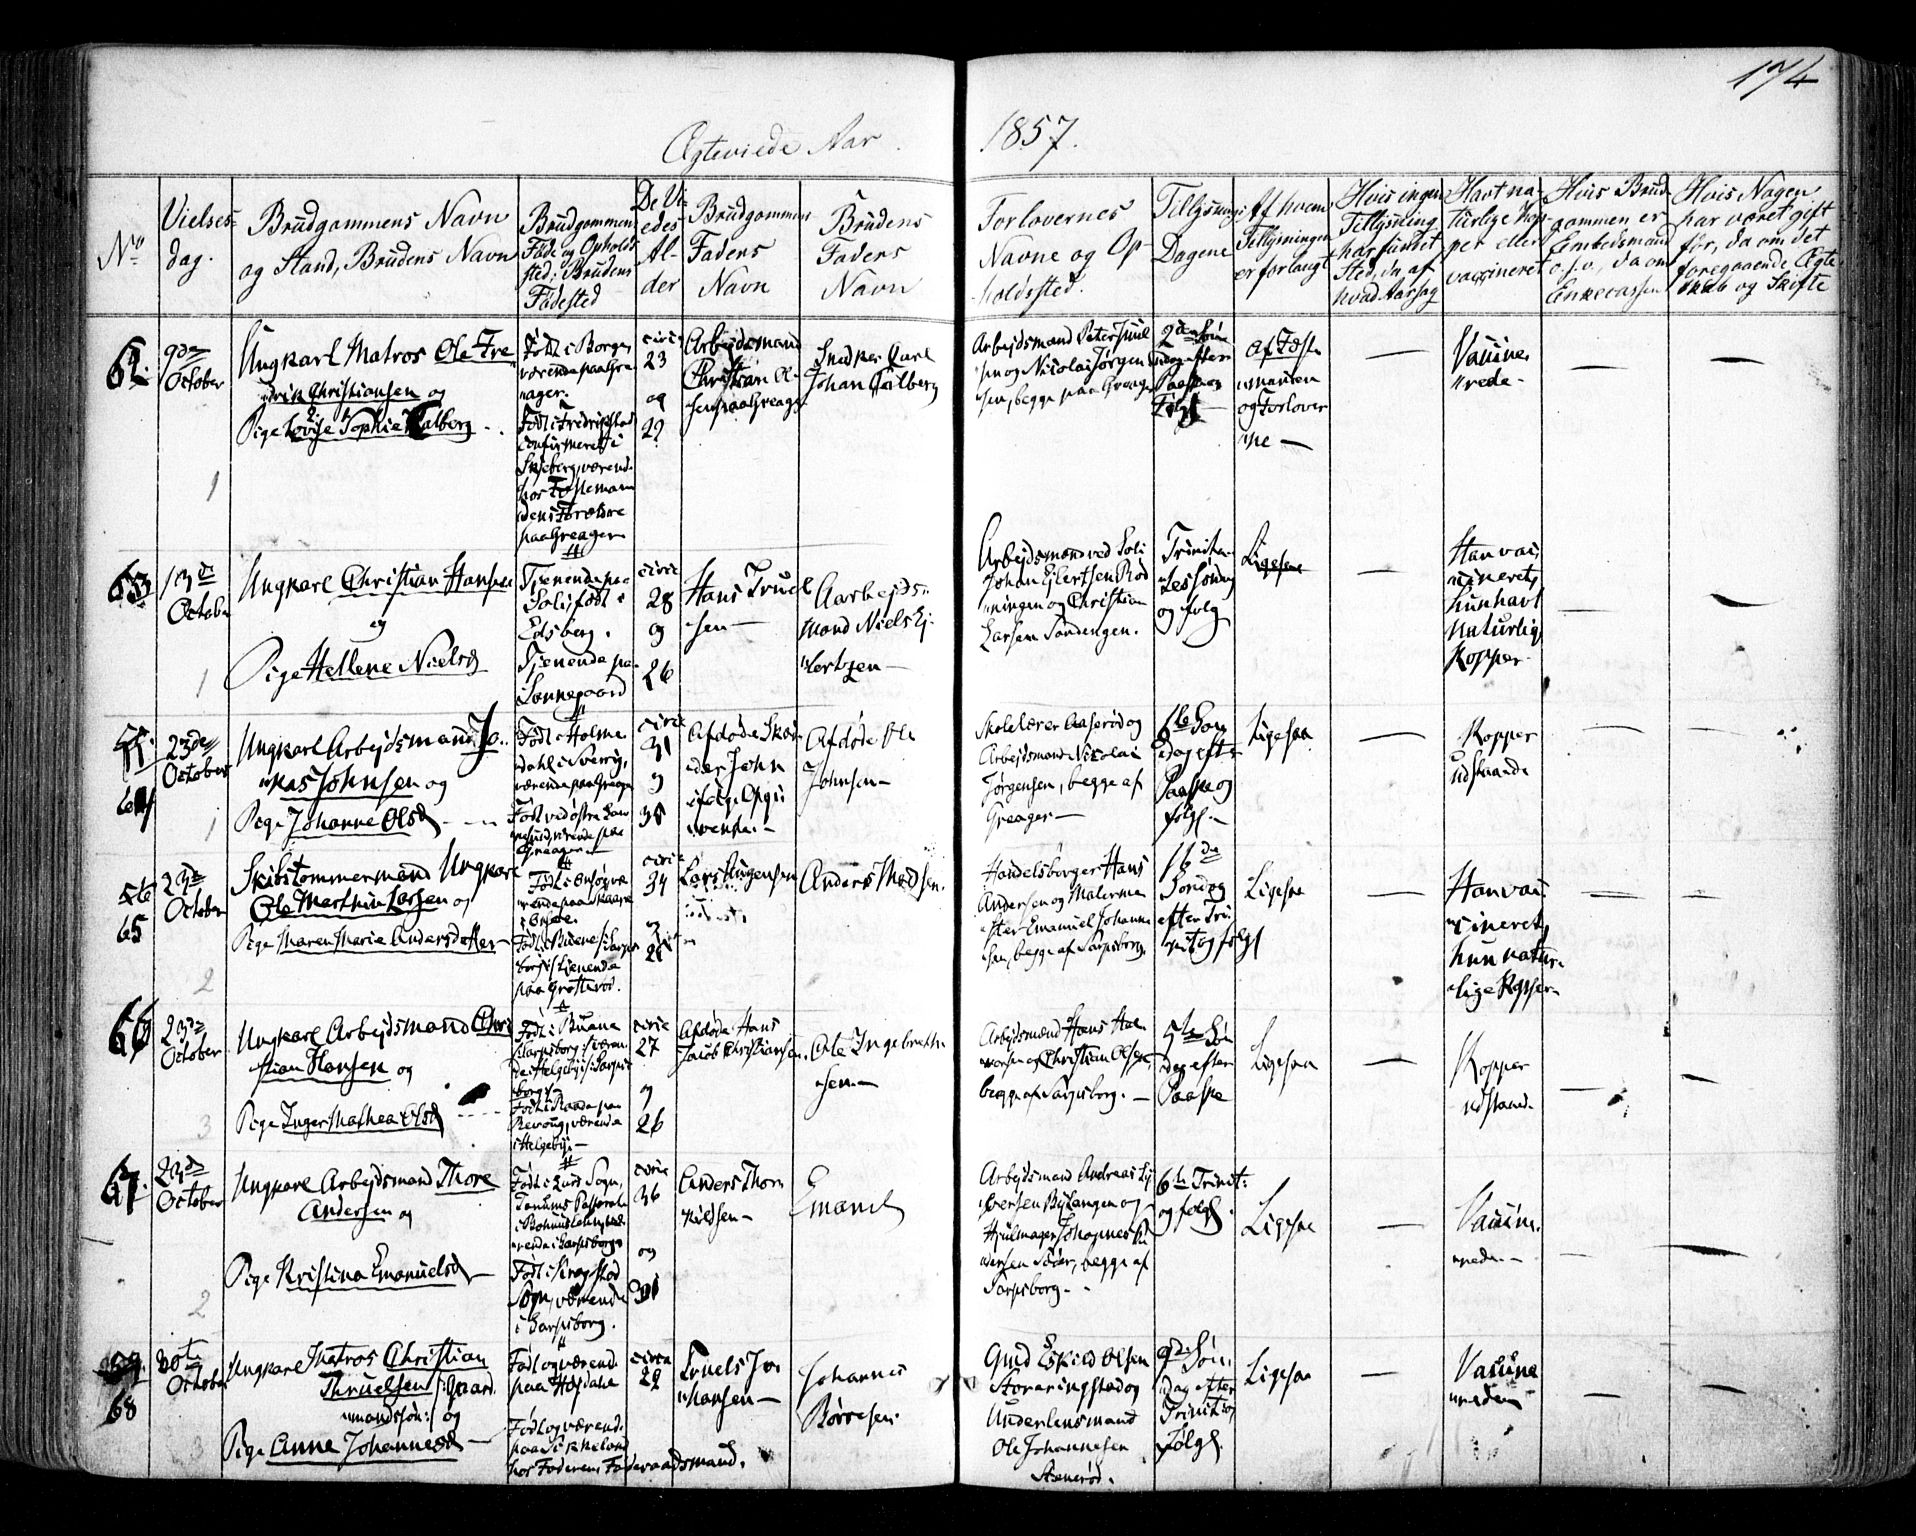 174
Ægteviede Aar 1857.
No
Vielses-
dag.
Brudgommens Navn
og Stand, Brudens Navn
Brudgommens
Føde og Opholds
sted; Brudens
Fødested
De Vi-
edes
Al-
der
Brudgommens
Faders
Navn
Brudens
Faders
Navn
Forlovernes
Navne og Op-
holdssted.
Tillysnings
Dagene
Af hvem
Tillysningen
er forlangt
Hvis ingen
Tillysning
har fundet
Sted, da, af
hvad Aarsag
Havt na-
turlige Kop-
per eller
vaccineret
Hvis Brud-
gommen er
Embedsmand
o.s.v., da om
Enkecassen
Hvis Nogen
har været gift
før, da om det
foregaaende Ægte
skab og Skifte
62.
9de
October
Ungkarl Matros Ole Fre
drik Christiansen og
Pige Lovise Sophie Calberg
1
Født i Borge,
værende paa Grea
ager.
Født i Fredrikstad
confirmeret i
Skjeberg, værend.
hos Fæstemann
dens Forældre
paa Greager
circa
23
og
29
Arbejdsmand
Christian Ol-
sen paa Greager
Snedker Carl
Johan Calberg
Arbejdsmand Peter
sen og Nicolai Jørgen
sen, begge paa Greager
2den Søn
dag efter
Paaske og
Følg
af Fæste
manden
og Forlover
ne —
—
Vaccine
rede
—
—
63
13de
October
Ungkarl Christian Hansen
og
Pige Hellene Nielsd
1
Tjenende paa
Soli, født i
Edsberg.
Tjenende paa
Sannegaard
circa
28
og
26
Hans Truel
sen —
Aarbejds-
mand Niels Ej-
lertsen —
Arbejdsmand ved Soli
Johan Ejlertsen Rød
ningen og Christian
Larsen Sandengen.
Trinita-
tes Søndag
og følg
Ligesaa
—
Han vac
cineret,
hun havt
naturlig
Kopper
—
—
64
23de
October
Ungkarl Arbejdsmand Jo
nas Johnsen og
Pige Johanne Olsd
1
Født i Holme
dahl i Sverrig,
værende paa Greager
Født ved østre
værende paa
Greager
circa
31
og
38
Afdøde
der John
ifølge Opgi
vende. —
Afdøde Ole
Johnsen —
Skolelærer Aaserød og
Arbejdsmand Nicolai
Jørgensen, begge af
Greager —
1ste Søn
dag efter
Paaske og
følg. —
Ligesaa
—
Kopper
udstaaende
—
56
65
23de
October
Skibstømmermand Ungkarl
Ole Marthin Larsen og
Pige Maren Marie Andersdatter
2
Født i Onsøe, væ
rende paa Skaare
i Onsøe.
tjenende
paa Grotterød.
circa
34
og
Lars Mugensen
Anders Madsen.
Handelsborger Hans
Andersen og Malerme
ster Emanuel Johanne
sen, begge af Sarpsborg.
16de
Søndag
efter Tri
nit og følg
Ligesaa
—
Han vac
cineret,
hun natur-
lige Kopper
—
—
66
23de
October
Ungkarl Arbejdsmand Chri
stian Hansen og
Pige Inger Mathea Olsd
3
værende
i Helgebye
circa
27
og
26
Afdøde Hans
Jacob Christiansen.
Ole Ingebreth
sen —
Arbejdsmand Hans Hal
vorsen og Christian Olsen,
begge af Sarpsborg. —
5te Søn
dag efter
Paaske
Ligesaa
—
Kopper
udstaad.
—
—
67.
23de
October
Ungkarl Arbejdsmand Thore
Andersen og
Pige Kristina Emanuelsd
2
Født i Lurs Sogn,
Tanums Pastorat
i Bohuuslehn, væ
rende i Sarpsborg
Født i Krogstad
Sogn, værende
i Sarpsborg.
circa
36
og
Anders Thor
kildsen —
Emanuel
Arbejdsmand Andreas
versen Bylangen og
Hjulmager Johannes
dersen Söder, begge af
Sarpsborg.
6te Trinit:
og følg.
Ligesaa
—
Vaccine
rede —
—
—
68
20de
October
Ungkarl Matros Christian
Thruelsen /: Gaard
mandssøn :/ og
Pige Anne Johannesd
3
Født og værend.
paa Højdahl
Født og værend.
paa
hos Faderen, Føderaadsmand.
circa
29
Truels Jo
hansen —
Johannes
Børresen
Gmd Eskild Olsen
Storeringstad og
Underlensmand
Ole Johannesen
Stenerød.
9de Søn
dag efter
Trinit og
Følg.
Ligesaa
—
Vaccine
rede
—
—